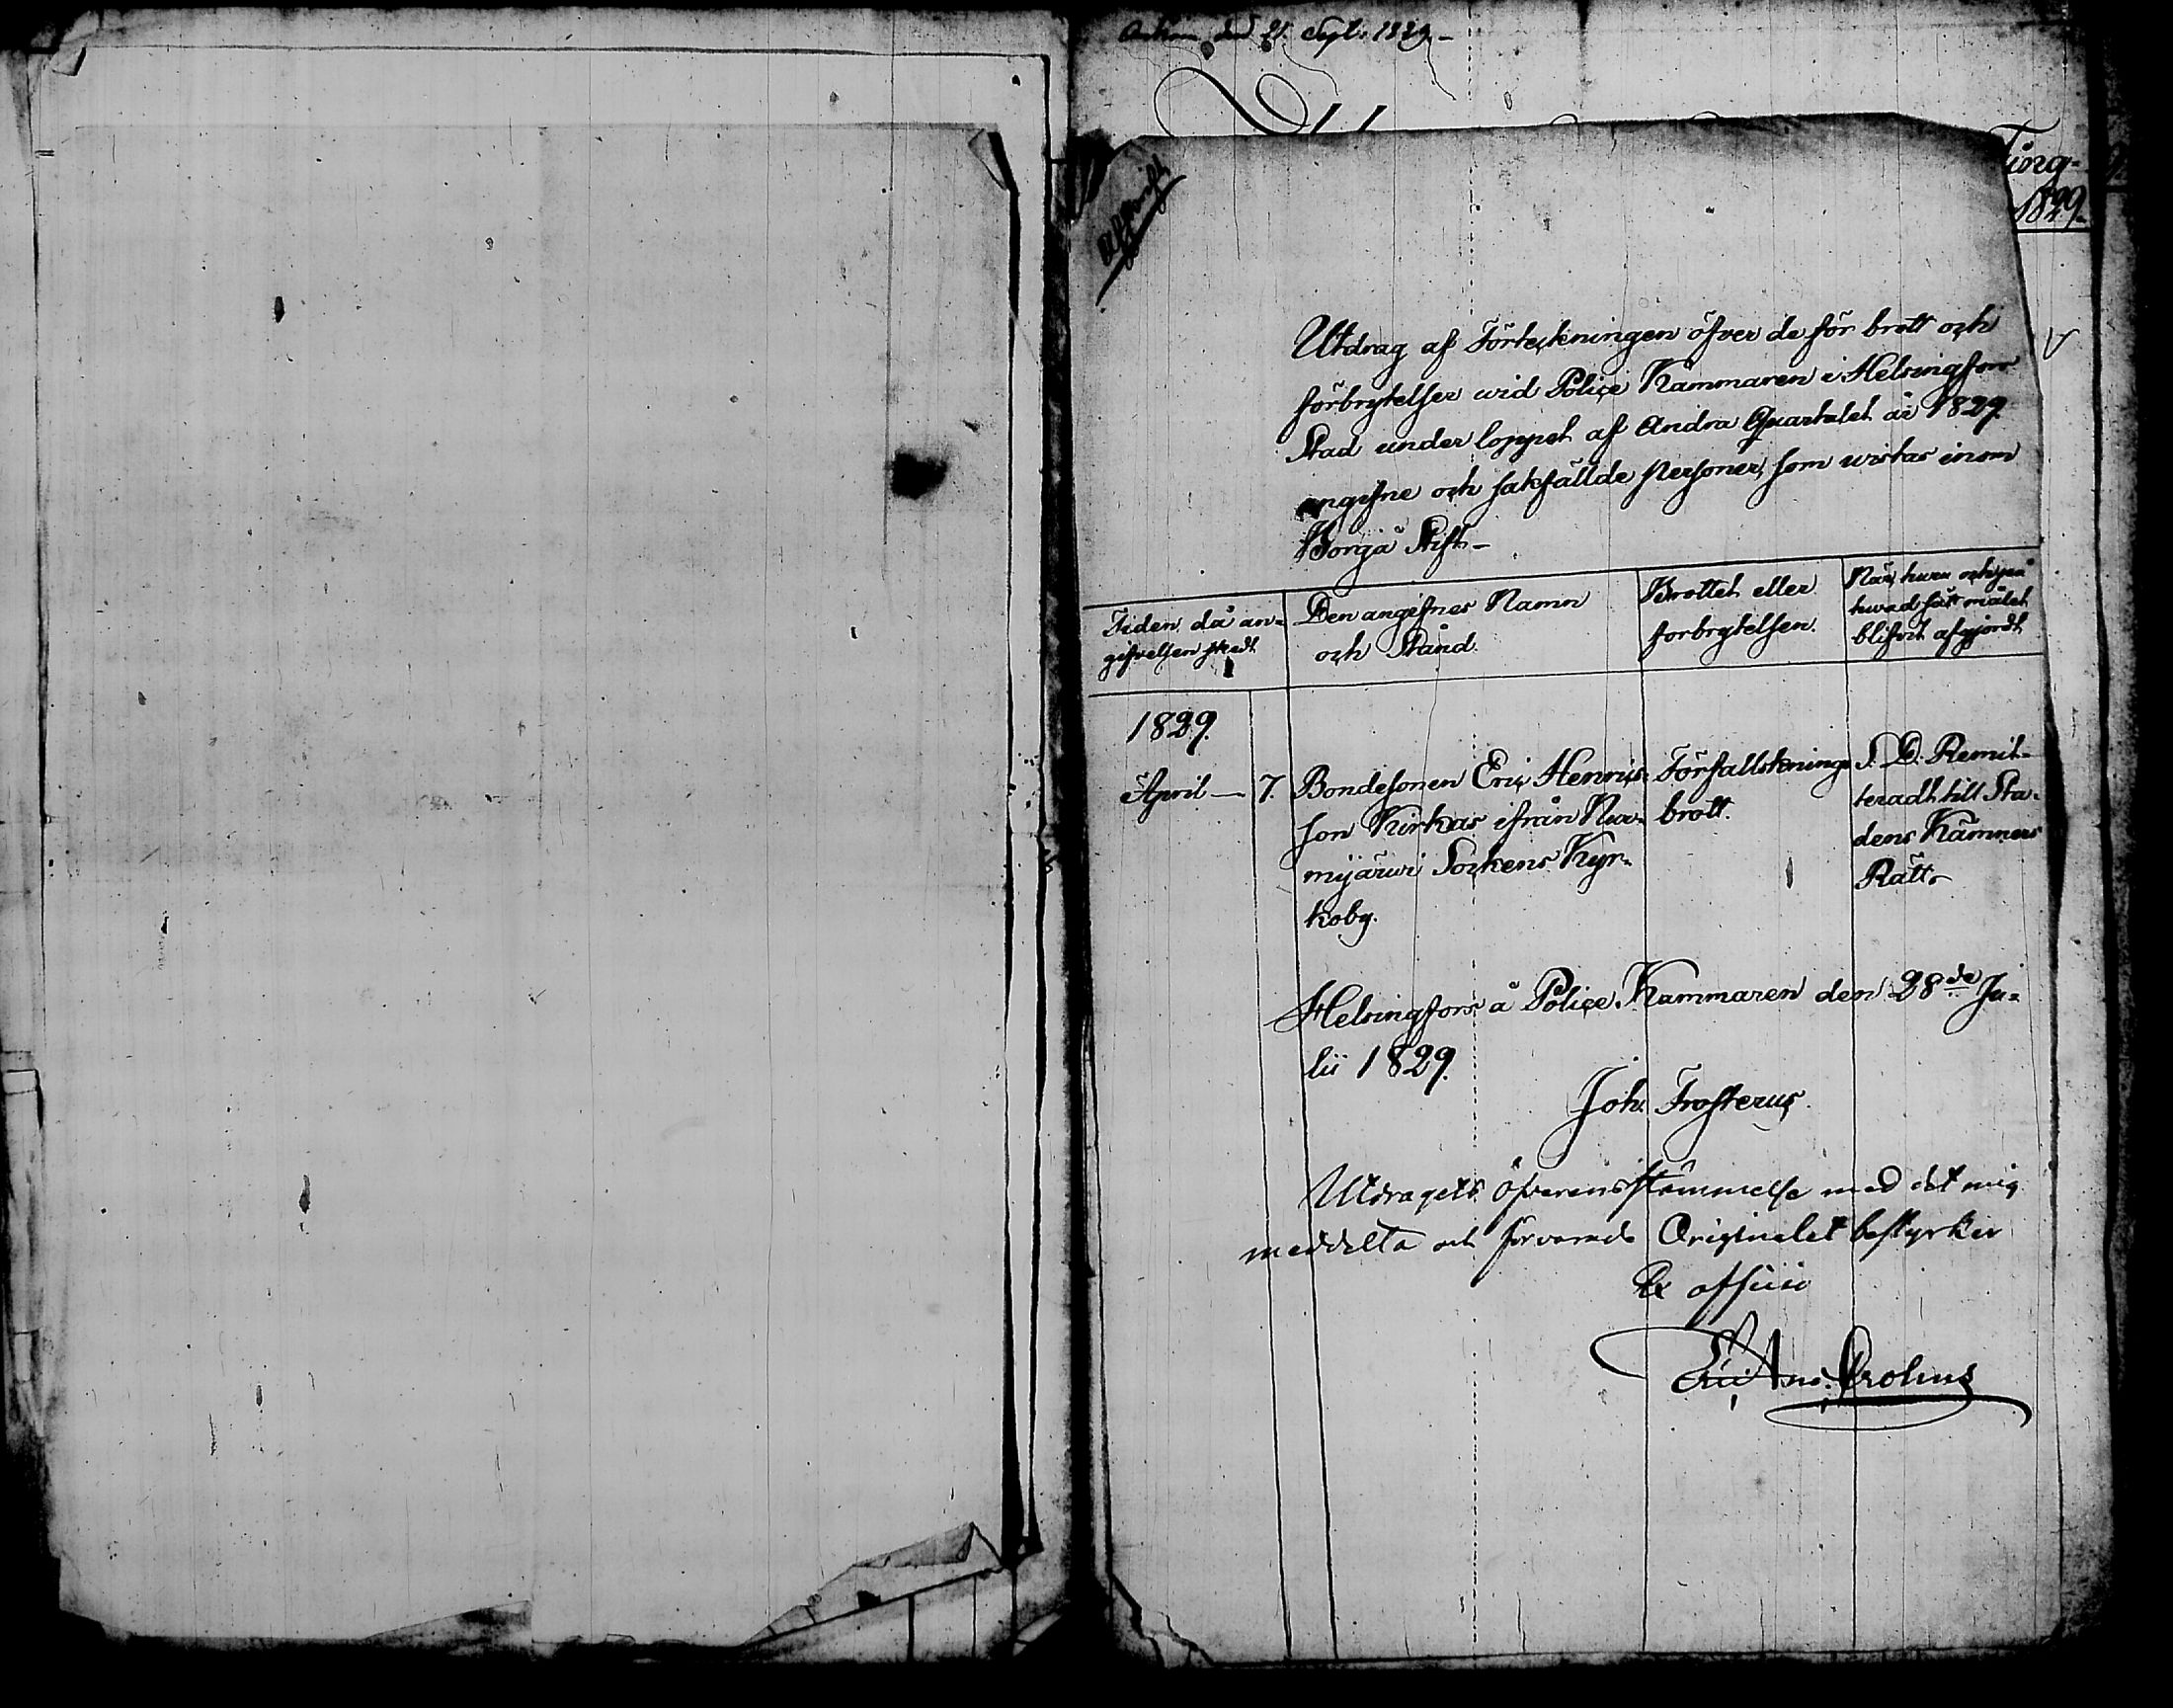 Ankom den 21 Sept. 1829.
Ting-
1829.
Afskrift
Utdrag af Förteckningen öfver de för brott och
förbrytelser wid Police Kammaren i Helsingfors
Stad under loppet af Andra Quartalet år 1829
angifne och sakfällde personer, som wistas inom
Borgå Stift.
Tiden då an-
gifvelsen skedt
Den angifnes Namn
och Stånd.
Brottet eller
forbrytelsen.
När, huru och på
hwad sätt målet
blifvit afgjordt
1829.
April — 7. Bondesonen Eric Henrics- Förfallsknings S. D. Remit-
son Kirkas ifrån Nur- brott. teradt till Sta-
mijärwi Sockens Kyr- dens Kämners
koby. Rätt.
Helsingfors å Police Kammaren den 28de Ju-
lii 1829.
Joh. Frosterus.
Utdragets öfverensstämmelse med det mig
meddelta och förvarade Originalet bestyrker
Ex officio